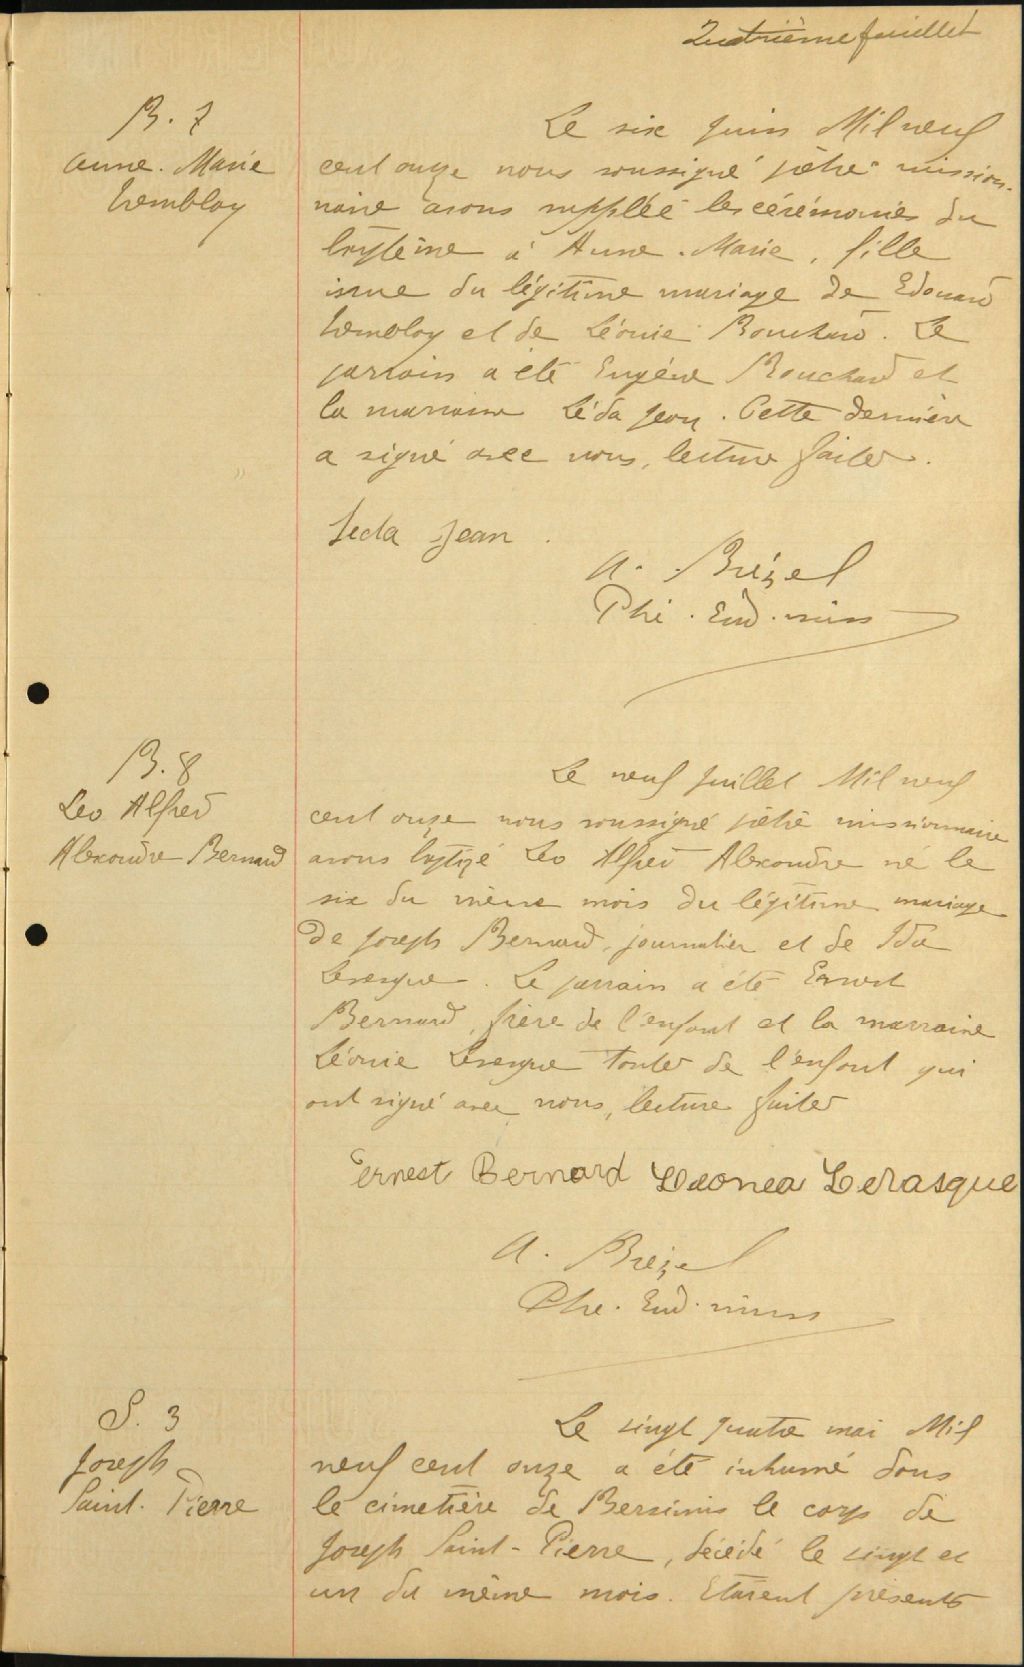 Quatrième feuillet
B. 7
Anne. Marie
Tremblay
Le six juin Mil neuf
cent onze nous soussigné prêtre mission-
naire avons suppléé les cérémonies du
baptême à Anne. Marie, fille
issue du légitime mariage de Edouard
Tremblay et de Léonie Bouchard. Le
parrain a été Eugène Bouchard et
la marraine Léda Jean. Cette dernière
a signé avec nous, lecture faite.
Leda Jean.
A. Brézel
Ptre. Eud. miss
B. 8
Leo Alfred
Alexandre Bernard
Le neuf juillet Mil neuf
cent onze nous soussigné prêtre missionnaire
avons baptisé Leo Alfred Alexandre né le
six du même mois du légitime mariage
de Joseph Bernard, journalier et de Ida
Levesque. Le parrain a été Ernest
Bernard, frère de l'enfant et la marraine
Léonie Levesque tante de l'enfant qui
ont signé avec nous, lecture faite
Ernest Bernard Leonea Levasque
A. Brézel
Ptre. Eud. miss
S. 3
Joseph
Saint. Pierre
Le vingt quatre mai Mil
neuf cent onze a été inhumé dans
le cimetière de Bersimis le corps de
Joseph Saint-Pierre, décédé le vingt et
un du même mois. Etaient présents